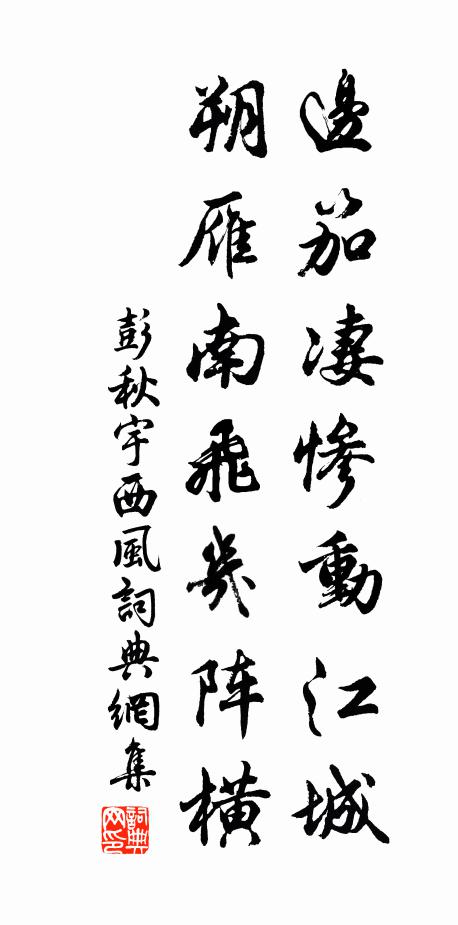 邊笳淒慘動江城
朔雁南飛幾阵橫
彭秋宇西風詞典網集
詞典
网印